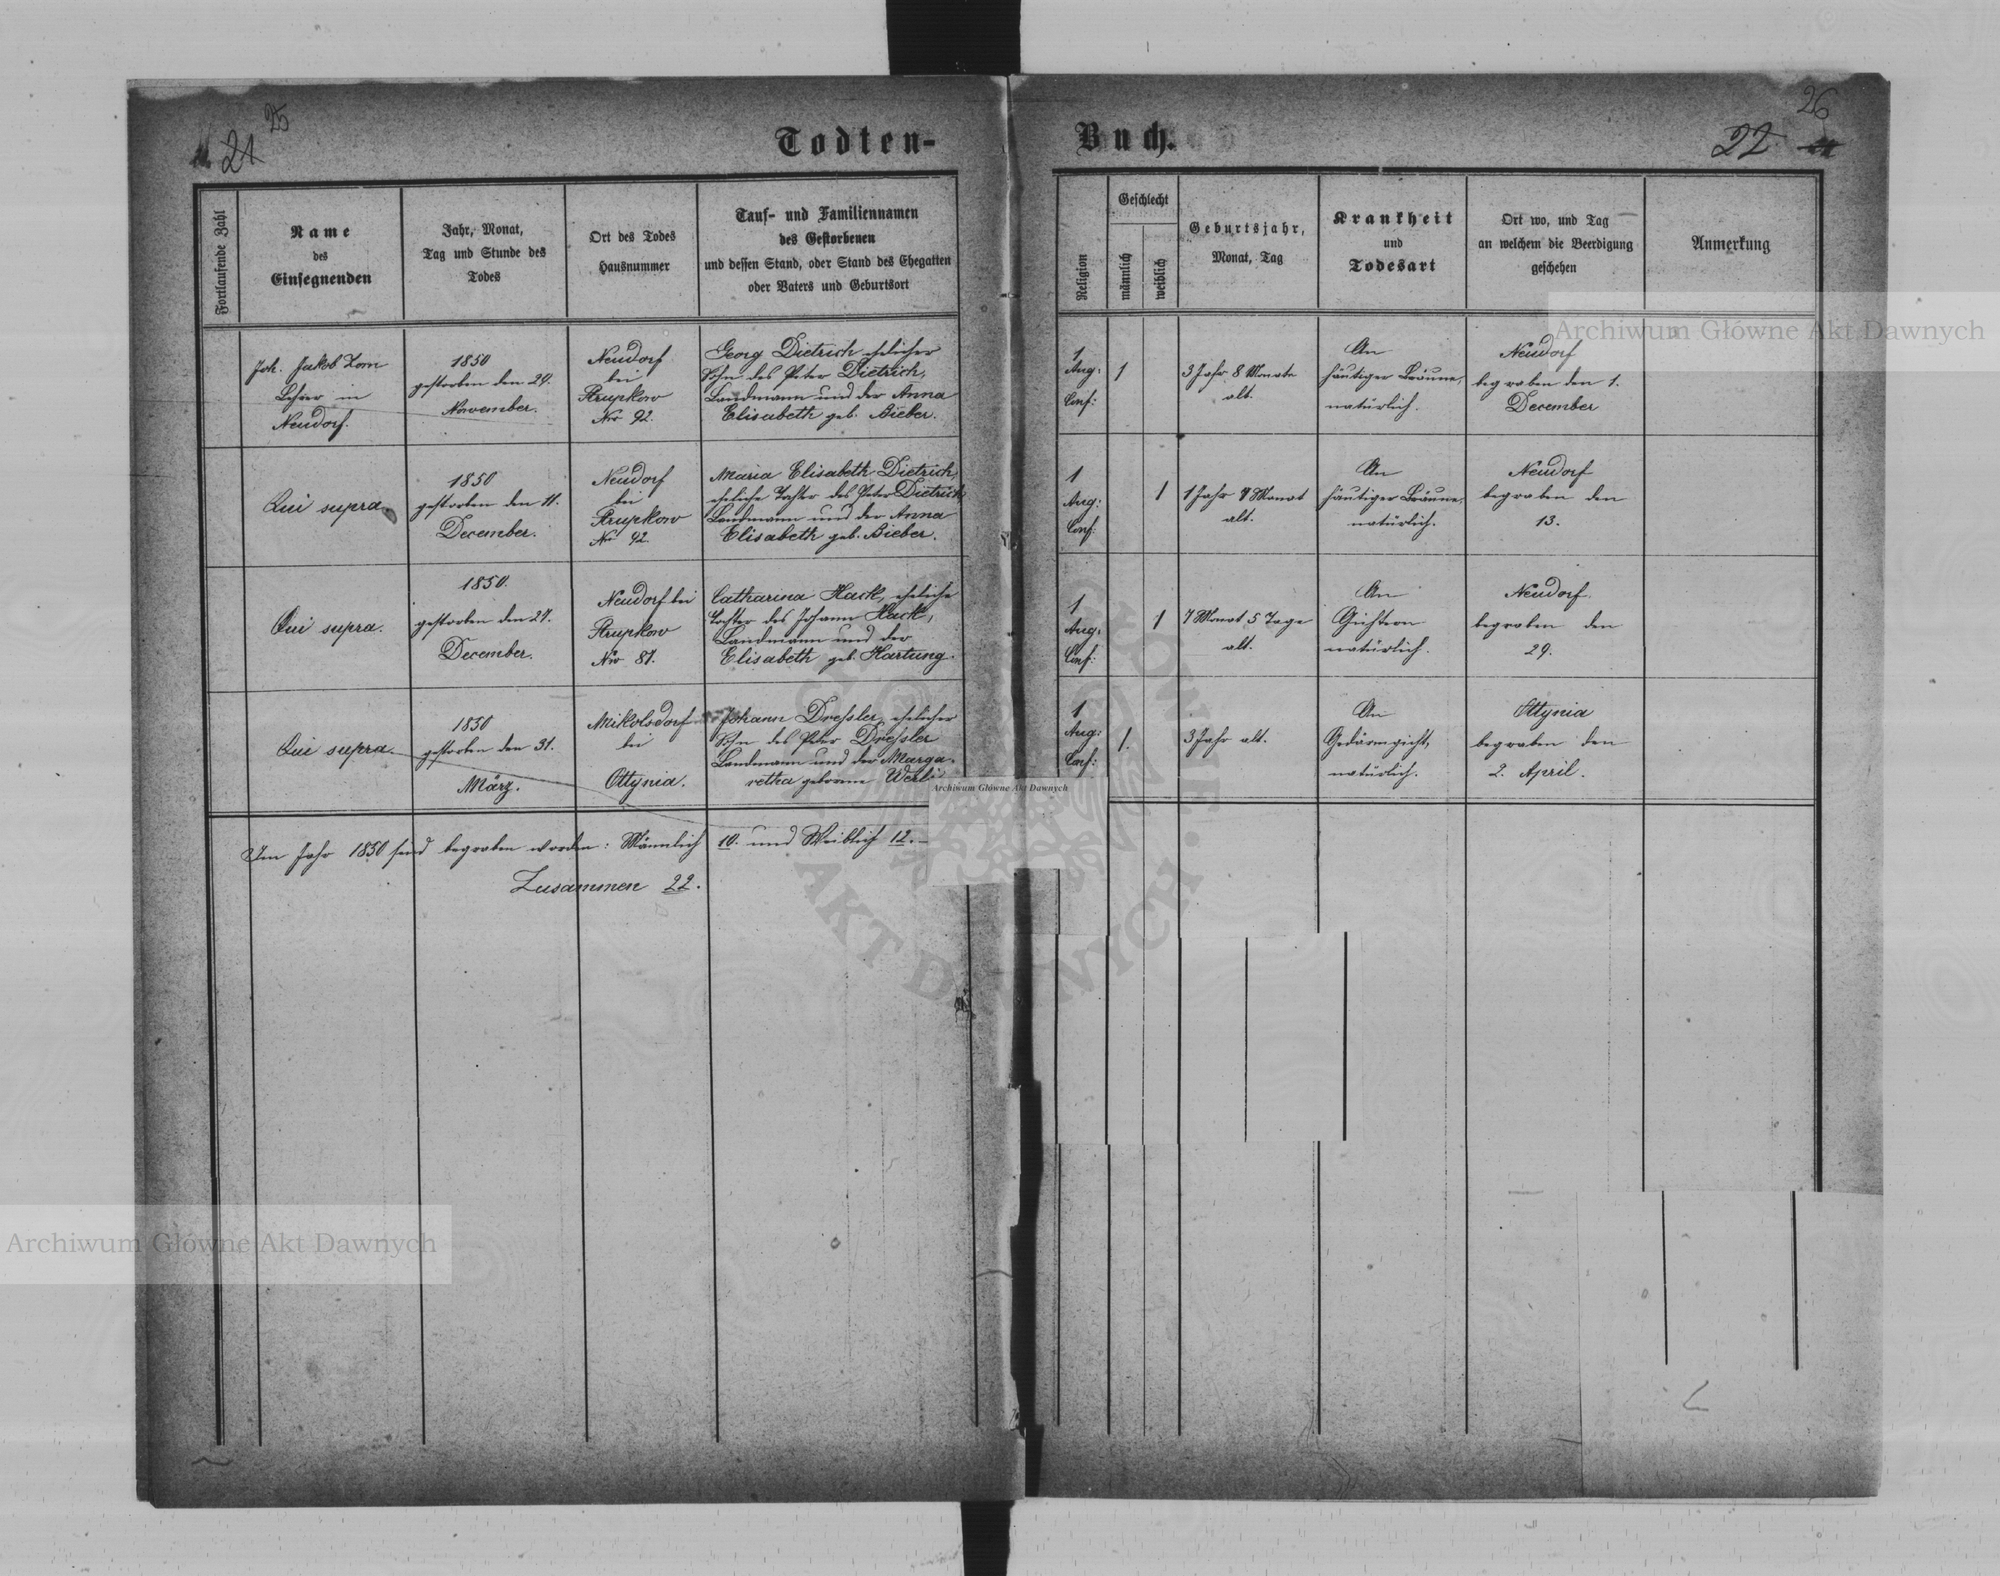 25
21
Todten-
Fortlaufende Zahl
Name
des
Einsegnenden
Jahr, Monat,
Tag und Stunde des
Todes
Ort des Todes
Hausnummer
Tauf- und Familiennamen
des Gestorbenen
und dessen Stand, oder Stand des Ehegatten
oder Vaters und Geburtsort
Joh. Jakob Zorn
Lehrer in
Neudorf.
1850
gestorben den 29.
November.
Neudorf
bei
Strupkow
Nro 92.
Georg Dietrich ehelicher
Sohn des Peter Dietrich,
Landmann und der Anna
Elisabeth geb. Bieber.
Qui supra.
1850
gestorben den 11.
December.
Neudorf
bei
Strupkow
Nro 92.
Maria Elisabeth Dietrich,
eheliche Tochter des Peter Dietrich
Landmann und der Anna
Elisabeth geb. Bieber.
Qui supra.
1850.
gestorben den 27.
December.
Neudorf bei
Strupkow
Nro 81.
Catharina Hack, eheliche
Tochter des Johann Hack,
Landmann und der
Elisabeth geb. Hartung.
Qui supra.
1850
gestorben den 31.
März.
Mikolsdorf
bei
Ottynia.
Johann Dressler, ehelicher
Sohn des Peter Dressler
Landmann und der Marga-
retha geborene Werli
Im Jahr 1850 sind begraben worden: Männlich 10. und Weiblich 12.
Zusammen 22.
26
22
Buch.
Religion
Geschlecht
männlich
weiblich
Geburtsjahr,
Monat, Tag
Krankheit
und
Todesart
Ort wo, und Tag
an welchem die Beerdigung
geschehen
Anmerkung
1
Aug:
Conf:
1
3 Jahr 8 Monate
alt.
An
häutiger Bräune,
natürlich.
Neudorf
begraben den 1.
December
1
Aug:
Conf:
1
1 Jahr 7 Monat
alt.
An
häutiger Bräune,
natürlich.
Neudorf
begraben den
13.
1
Aug:
Conf:
1
7 Monat 5 Tage
alt.
An
Gichtern
natürlich.
Neudorf.
begraben den
29.
1
Aug:
Conf:
1.
3 Jahr alt.
An
Gedärmgicht,
natürlich.
Ottynia
begraben den
2. April.
Archiwum Główne Akt Dawnych
Archiwum Główne Akt Dawnych
Archiwum Główne Akt Dawnych
AKT DAWNYCH